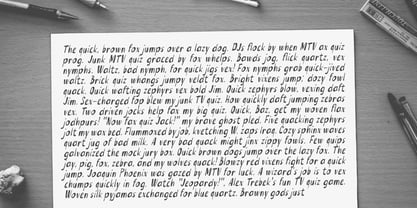 The quick, brown fox jumps over a lazy dog. DJs flock by when MTV ax quiz
prog. Junk MTV quiz graced by fox whelps. Bawds jog, flick quartz, vex
nymphs. Waltz, bad nymph, for quick jigs vex! Fox nymphs grab quick-jived
waltz. Brick quiz whangs jumpy veldt fox. Bright vixens jump; dozy fowl
quack. Quick wafting zephyrs vex bold Jim. Quick zephyrs blow, vexing daft
Jim. Sex-charged fop blew my junk TV quiz. How quickly daft jumping zebras
vex. Two driven jocks help fax my big quiz. Quick, Baz, get my woven flax
jodhpurs! "Now fax quiz Jack!" my brave ghost pled. Five quacking zephyrs
jolt my wax bed. Flummoxed by job, kvetching W. zaps Iraq. Cozy sphinx waves
quart jug of bad milk. A very bad quack might jinx zippy fowls. Few quips
galvanized the mock jury box. Quick brown dogs jump over the lazy fox. The
jay, pig, fox, zebra, and my wolves quack! Blowzy red vixens fight for a quick
jump. Joaquin Phoenix was gazed by MTV for luck. A wizard's job is to vex
chumps quickly in fog. Watch "Jeopardy!", Alex Trebek's fun TV quiz game.
Woven silk pyjamas exchanged for blue quartz. Brawny gods just